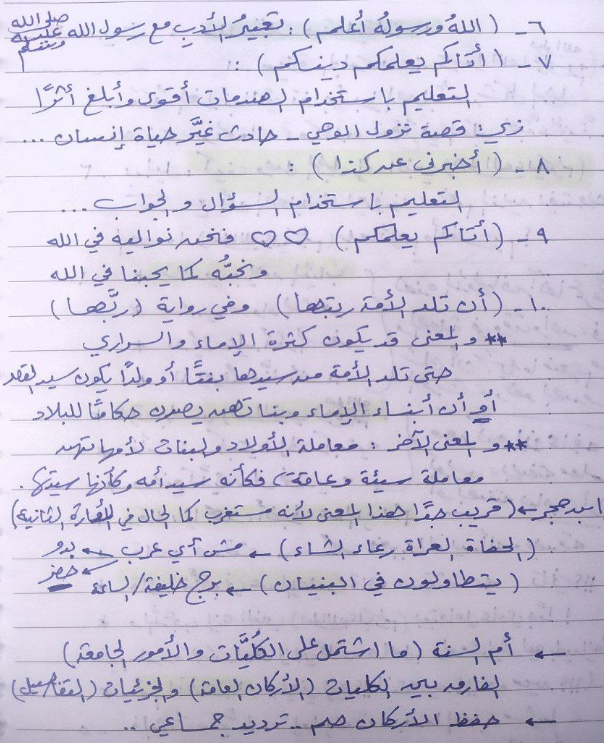 ٦- (اللهُ ورسولُه أعلم) : تعبيرُ التأدب مع رسول الله صلى الله عليه وسلم
٧- (أتاكم يعلمكم دينكم) :
التعليم باستخدام الصدمات أقوى وأبلغ أثرًا
زي: قصة نزول الوحي - حادث غيَّر حياة إنسان ...
٨- (أخبرني عن كذا) :
التعليم باستخدام السؤال والجواب ...
٩- (أتاكم يعلمكم) ♡♡ فنحن نواليه في الله
ونحبُّه كما يحبنا في الله
١٠- (أن تلد الأمة ربتها) وفي رواية (ربَّها)
** والمعنى قد يكون كثرة الإماء والسراري
حتى تلد الأمة من سيدها بنتًا أو ولدًا يكون سيد
أو أن أبناء الإماء وبناتهن يصيرون حكامًا للبلاد
** والمعنى الآخر : معاملة الأولاد والبنات لأمهاتهن
معاملة سيئة وعاقة) فكأنه سيد أمه وكأنها سيدتها.
ابن حجر ← (قريب جدًا هذا المعنى لأنه مستغرب كما الحال في الثانية)
(الحفاة العراة رعاء الشاء) ← مش أي عرب ← بدو
← حضر
(يتطاولون في البنيان) ← برج خليفة/الساعة
← أم السنة (ما اشتمل على الكُليَّات والأمور الجامعة)
الفارق بين الكليات (الأركان العامة) والجزئيات (التفاصيل)
← حفظ الأركان صم .. ترديد جماعي ..